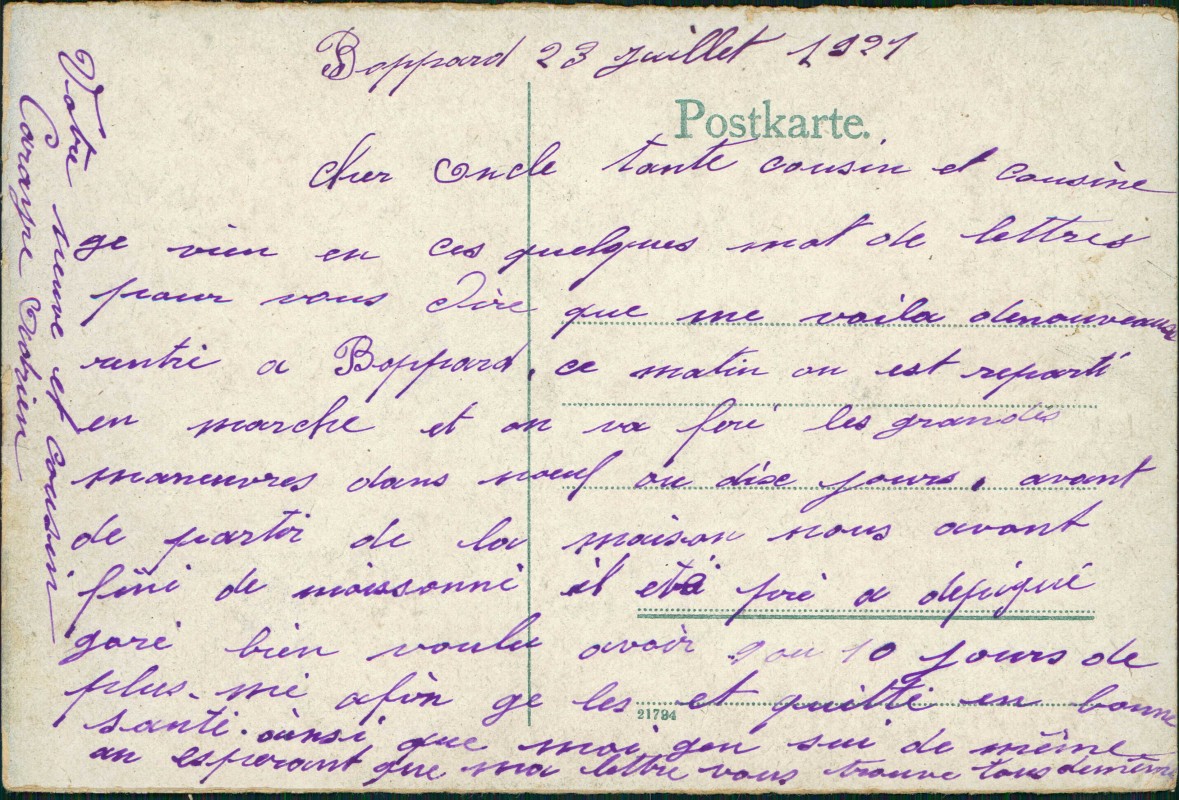 Boppard 23 Juillet 1921
Postkarte.
cher Oncle tante cousin et cousine
ge vien en ces quelques mot de lettres
pour vous dire que me voila denouveau
rentré a Boppard, ce matin on est reparti
en marche et on va foré les grandes
maneuvres dans neuf ou dix jours, avant
de partir de la maison nous avont
fini de moissonné il eté foré a depigué
goré bien voulu avoir 9 ou 10 jours de
plus. mé afin ge les et quitté en bonne
21794
santé. ainsi que moi gen sui de même
an esperant que ma lettre vous trouve tous de même
Votre neuve et cousin
Adrien